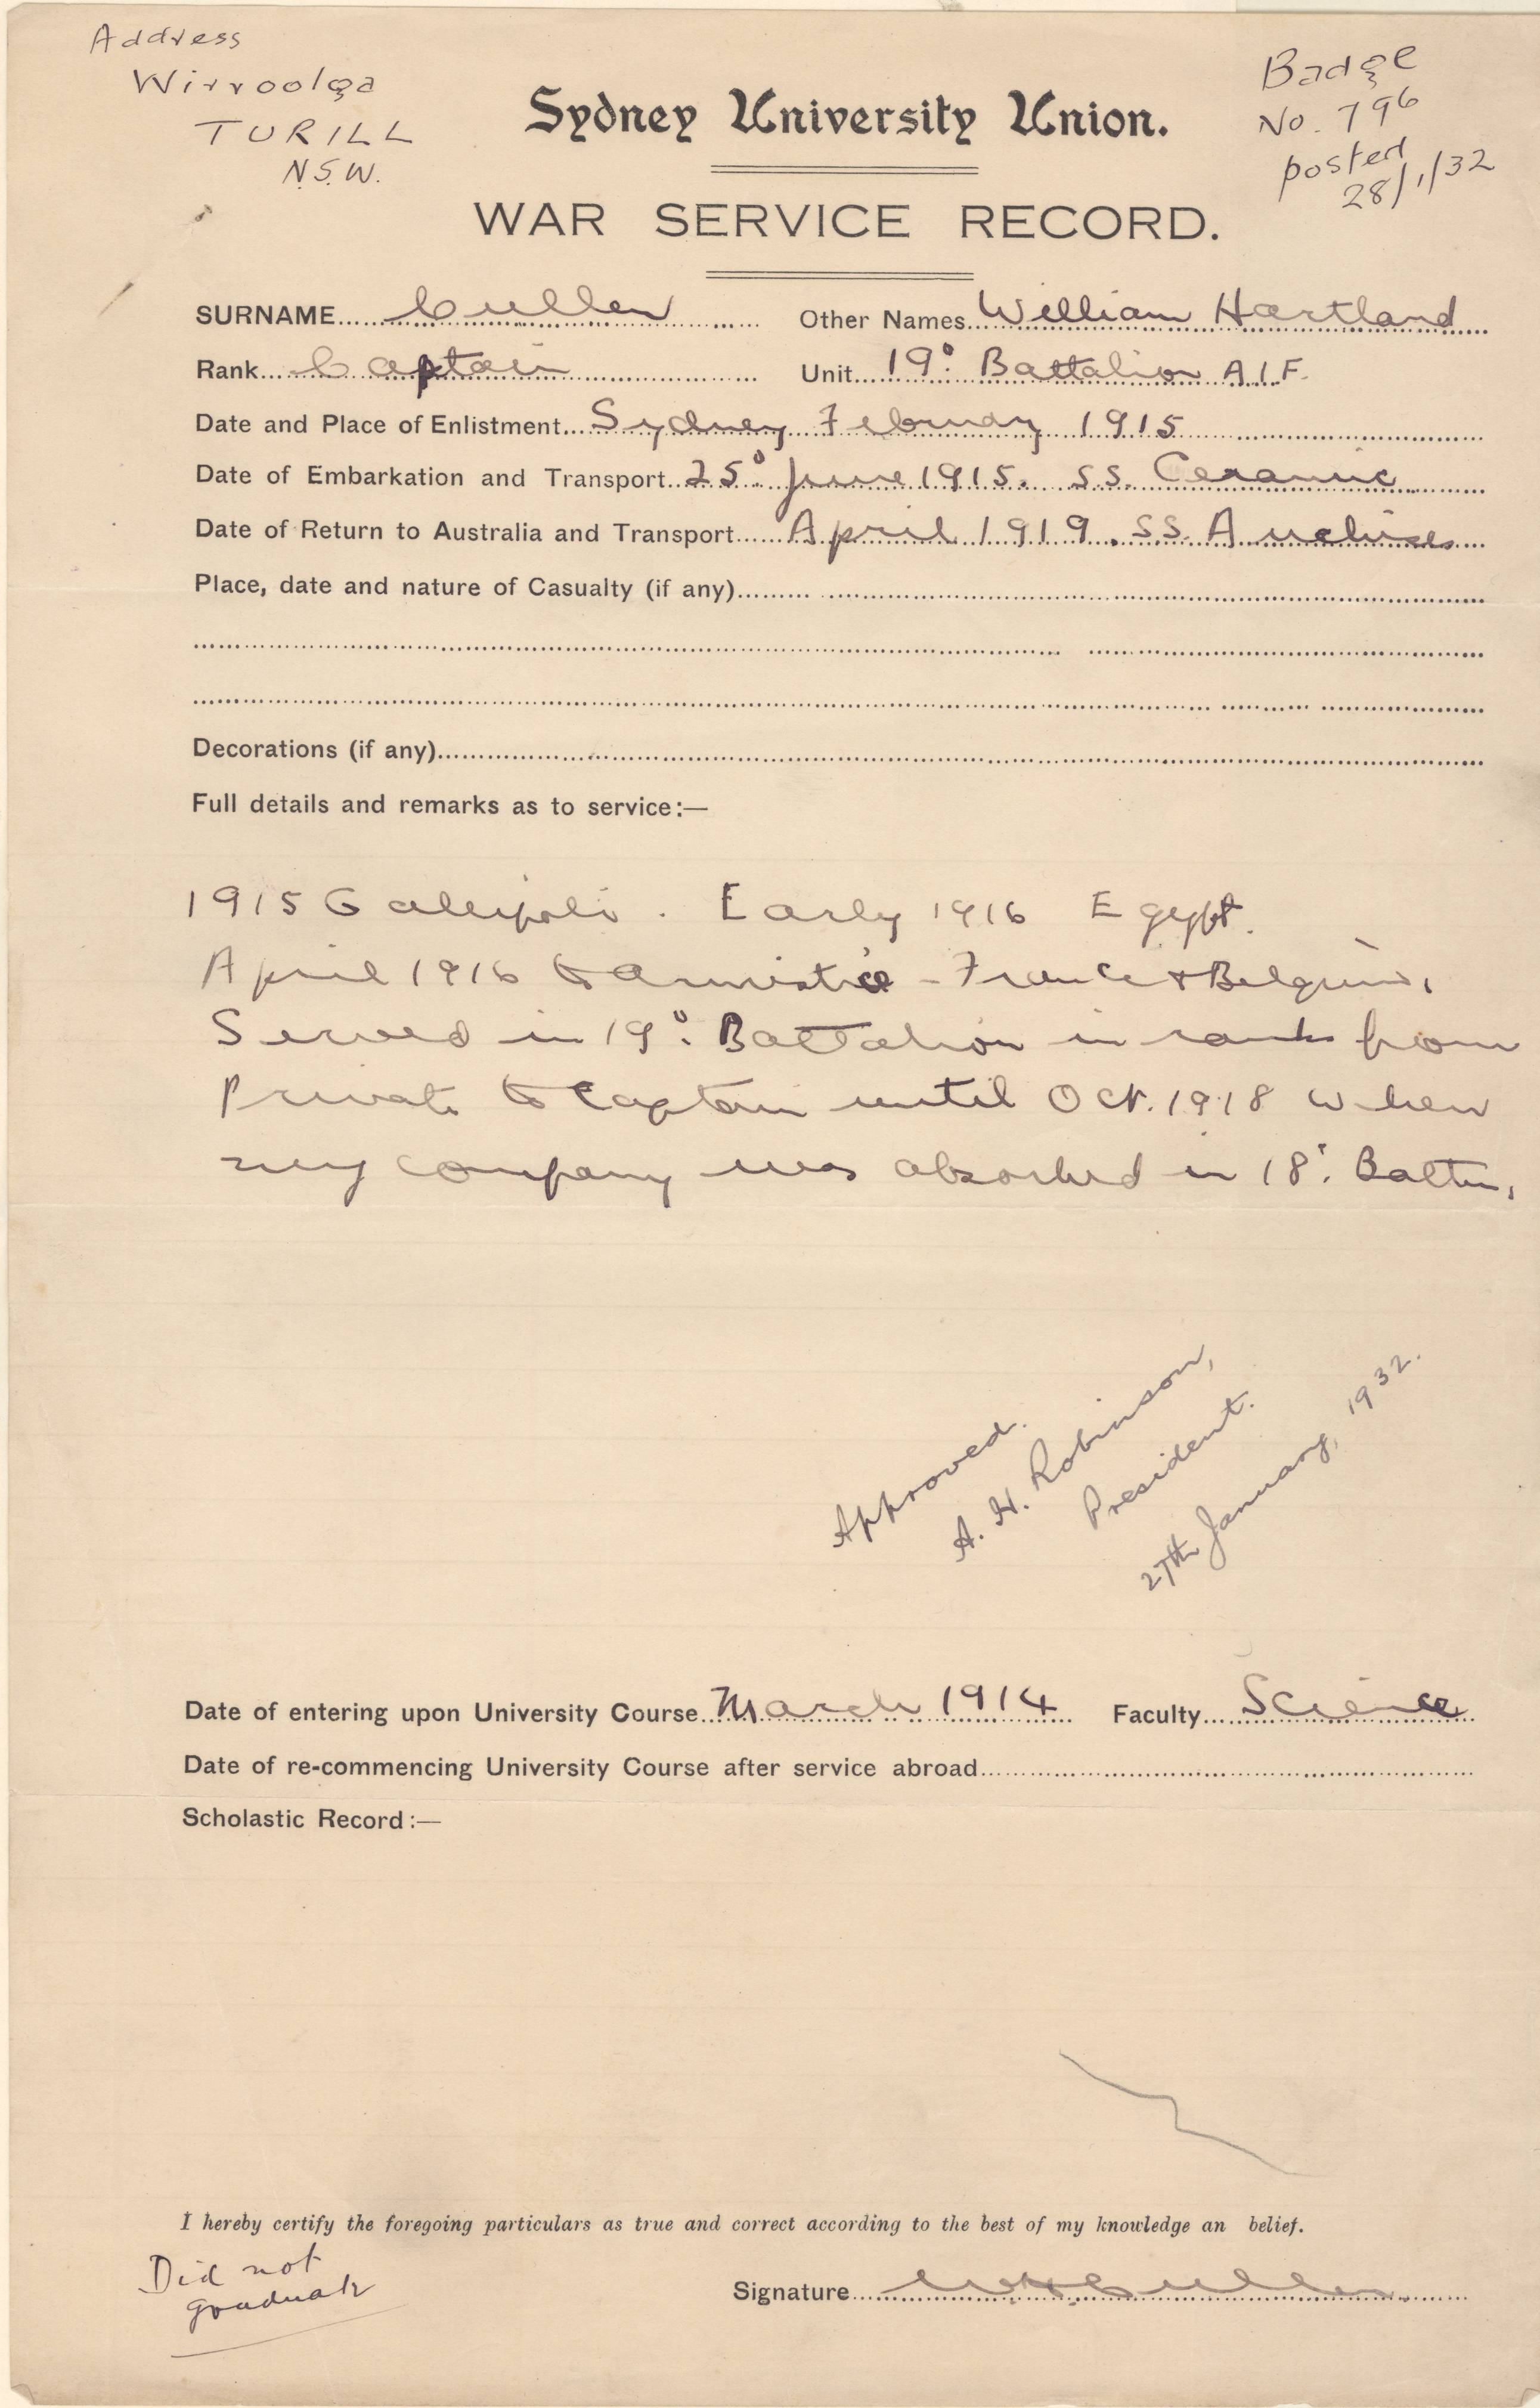 Address
Wirroolga
TURILL
N.S.W.
Badge
No. 796
posted
28/1/32
Sydney University Union.
WAR SERVICE RECORD.
SURNAME Cullen Other Names William Hartland
Rank Captain Unit 19º Battalion A.I.F.
Date and Place of Enlistment Sydney February 1915
Date of Embarkation and Transport 25º June 1915. SS. Ceramic
Date of Return to Australia and Transport April 1919. SS. Anchises
Place, date and nature of Casualty (if any)
Decorations (if any)
Full details and remarks as to service:—
1915 Gallipoli. Early 1916 Egypt.
April 1916 to armistice - France & Belgium,
Served in 19º. Battalion in ranks from
Private to Captain until Oct. 1918 when
my company was absorbed in 18º. Battn,
Approved.
A. H. Robinson,
President.
27th January, 1932.
Date of entering upon University Course March 1914 Faculty Science
Date of re-commencing University Course after service abroad
Scholastic Record:—
I hereby certify the foregoing particulars as true and correct according to the best of my knowledge an belief.
Did not
graduate
Signature W H Cullen